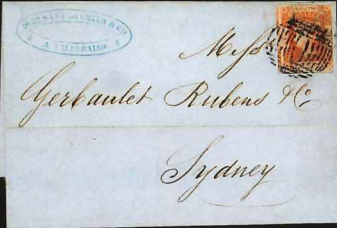 & Co.
A VALPARAISO
Messrs
Gerbaulet Rubens & Co
Sydney